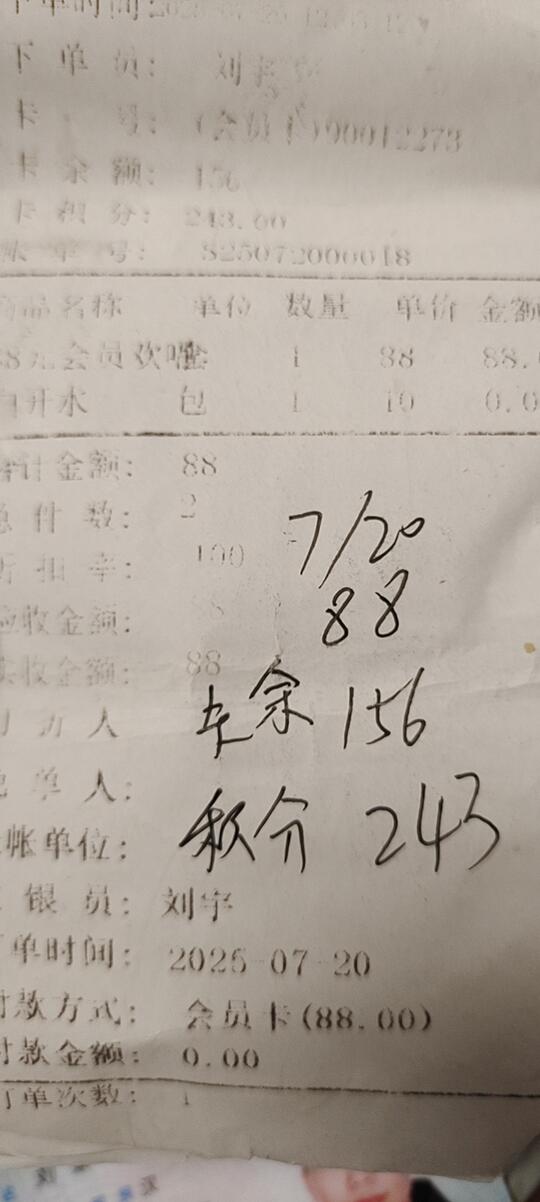 单时间:2025-07-20
下 单 员: 刘宇
卡 号: (会员卡)90012273
卡 余 额: 156
卡 积 分: 243.00
账 单 号: S25072000018
商品名称 单位 数量 单价 金额
88元会员欢唱 套 1 88 88.
白开水 包 1 10 0.0
合计金额: 88
总 件 数: 2
折 扣 率: 100
应收金额: 88
实收金额: 88
7/20
88
卡余 156
积分 243
单 人:
帐单位:
银 员: 刘宇
单时间: 2025-07-20
付款方式: 会员卡(88.00)
付款金额: 0.00
订单次数: 1